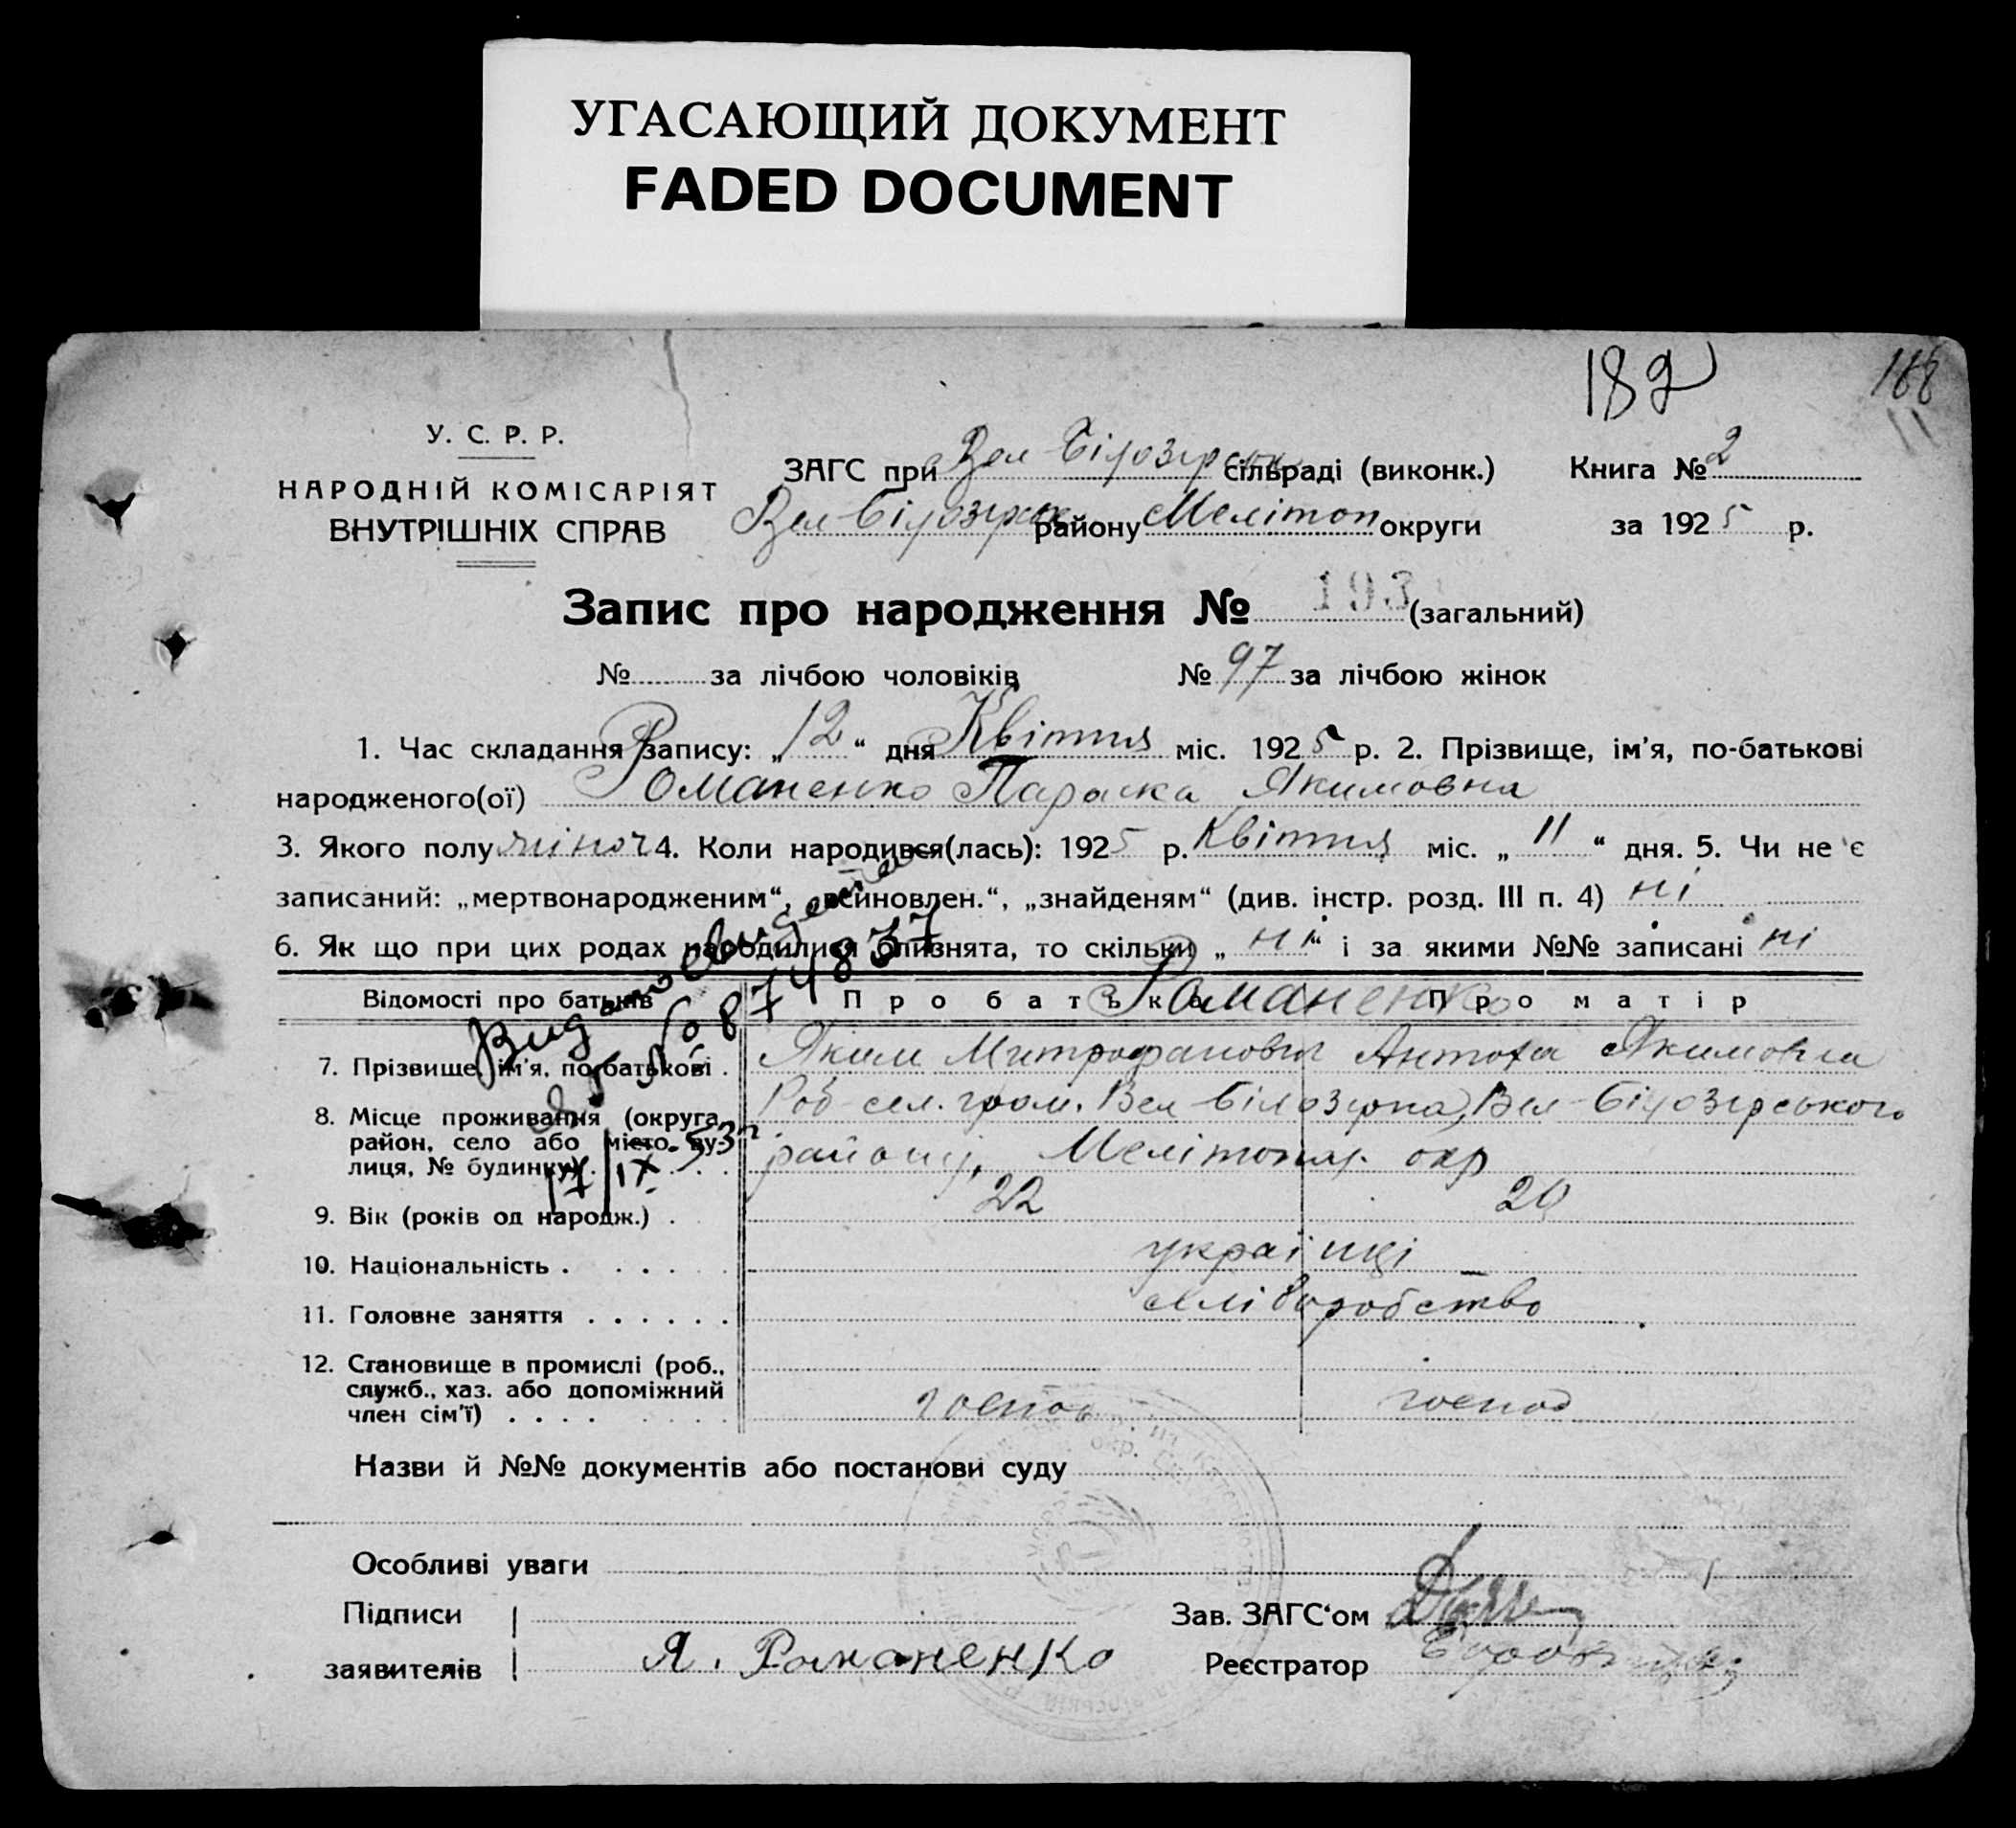 УГАСАЮЩИЙ ДОКУМЕНТ
FADED DOCUMENT
182
188
У. С. Р. Р.
НАРОДНІЙ КОМІСАРІЯТ
ВНУТРІШНІХ СПРАВ
ЗАГС при Вел Білозірськ сільраді (виконк.) Книга № 2
Вел-Білозірськ району Мелітоп округи за 1925 р.
Запис про народження № 193 (загальний)
№ за лічбою чоловіків № 97 за лічбою жінок
1. Час складання запису: „12“ дня Квітня міс. 1925 р. 2. Прізвище, ім'я, по-батькові
народженого(ої) Романенко Параска Якимовна
3. Якого полу жіноч 4. Коли народився(лась): 1925 р. Квітня міс. „11“ дня. 5. Чи не є
записаний: „мертвонародженим“, „всиновлен.“, „знайденям“ (див. інстр. розд. III п. 4) ні
6. Як що при цих родах народилися близнята, то скільки „ні“ і за якими №№ записані ні
Відомості про батьків Про батька Про матір
Романенко
7. Прізвище, ім'я, по-батькові . Яким Митрофанович Якимовна
8. Місце проживання (округа, район, село або місто, вулиця, № будинку) . . . . Роб-сел. гром. Вел Білозірка, Вел-Білозірського
району, Мелітоп. окр
9. Вік (років од народж.) . 22 20
10. Національність . . . . українці
11. Головне заняття . . . . . . хліборобство
12. Становище в промислі (роб., служб., хаз. або допоміжний член сім'ї) . . . . господ господ
Видано свидетел
№ 874837
17/IX-53г
Назви й №№ документів або постанови суду
Особливі уваги
Підписи
заявителів Я. Романенко
Зав. ЗАГС'ом
Реєстратор